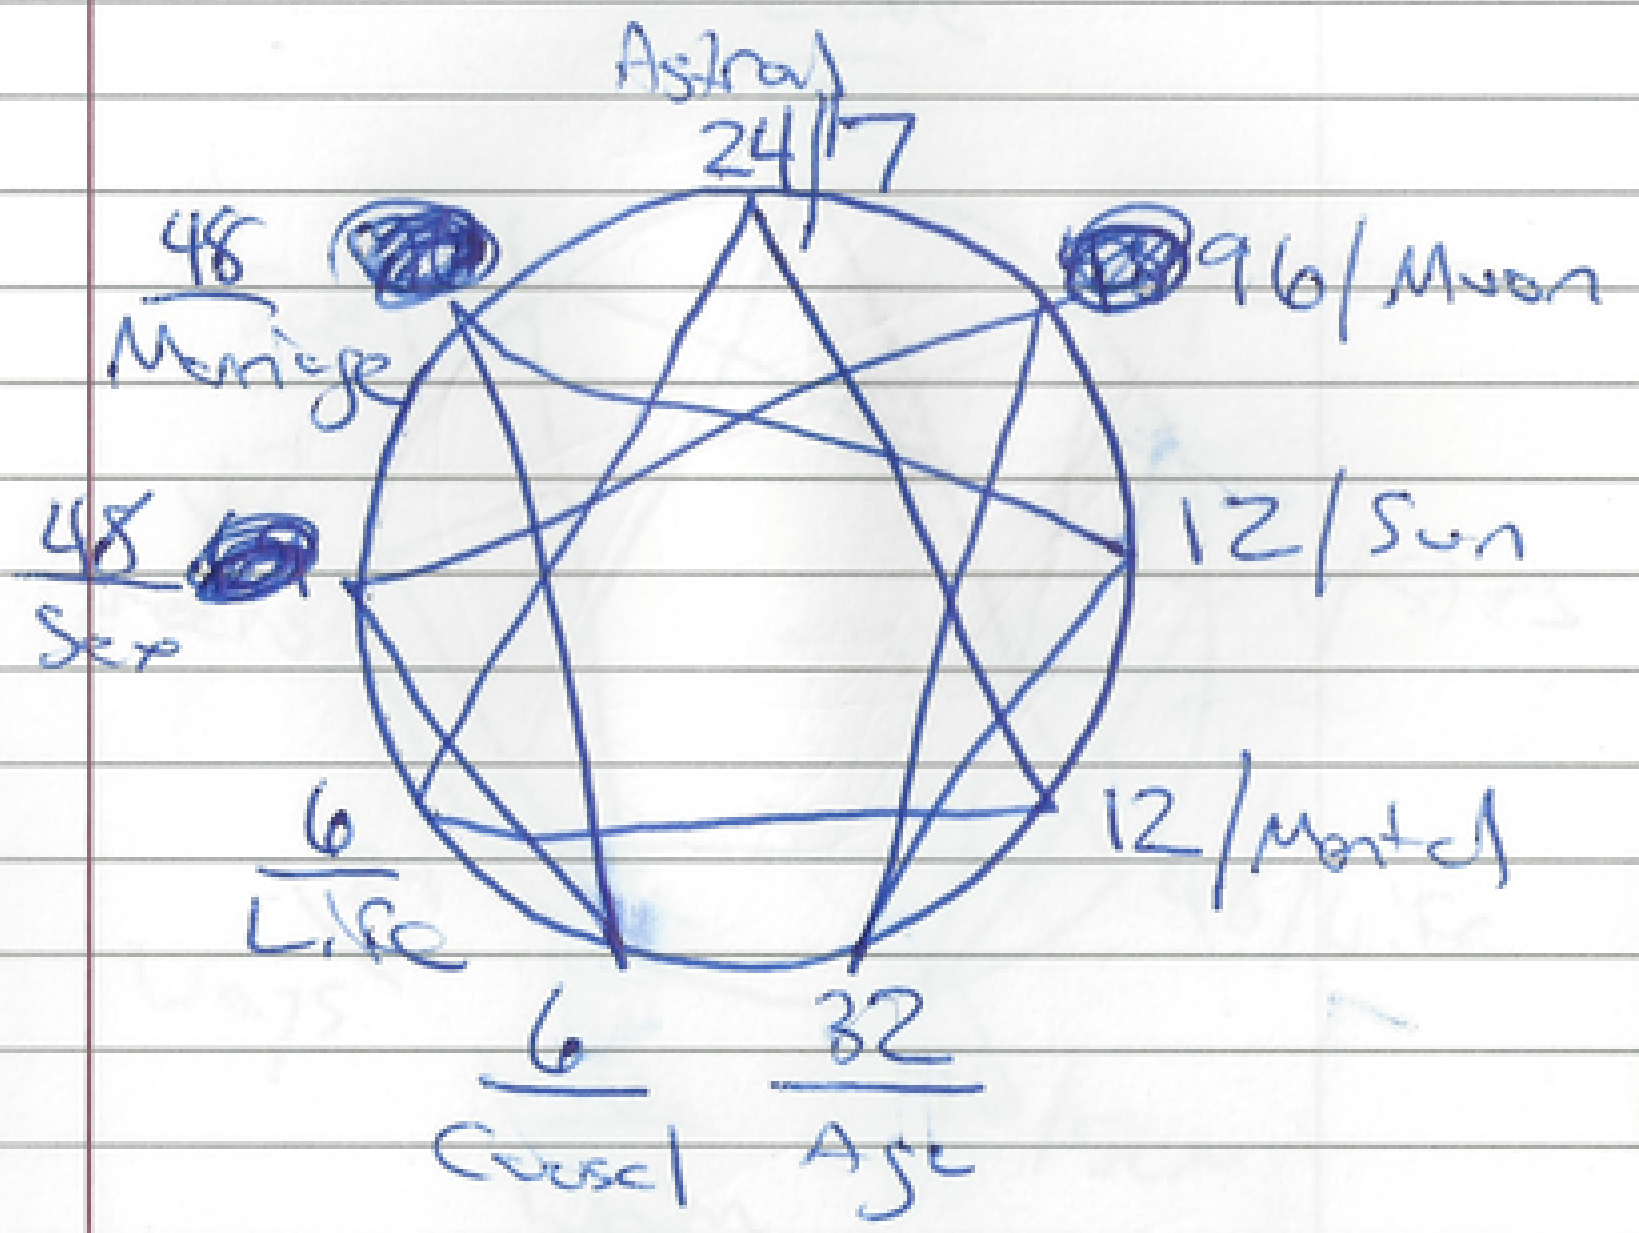 Astral
24/7
96/Moon
12/Sun
12/Mental
32
Age
6
Causal
6
Life
48
Sex
48
Marriage